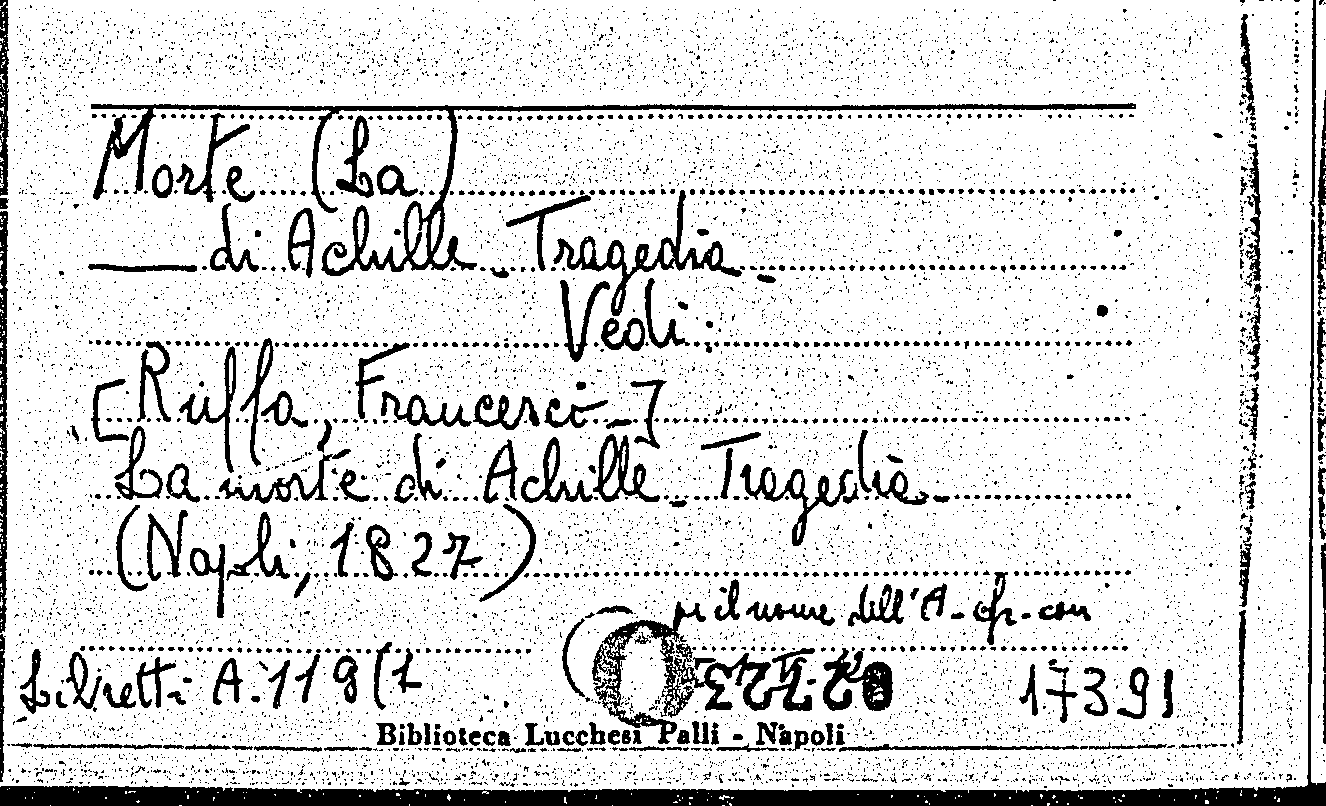 Morte (La)
— di Achille - Tragedia -
Vedi:
[Ruffa, Francesco -]
La morte di Achille - Tragedia -
(Napoli, 1827)
per il nome dell'A. cfr. con
Libretti A. 119 (1
17391
Biblioteca Lucchesi Palli - Napoli